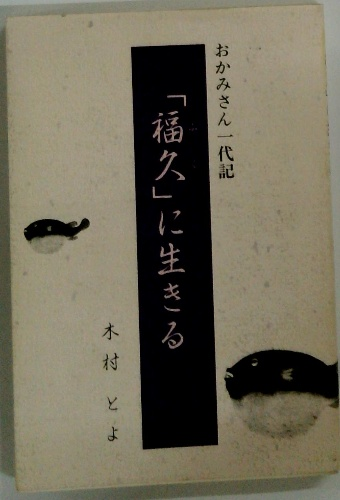 おかみさん一代記
「福久」に生きる
木村とよ